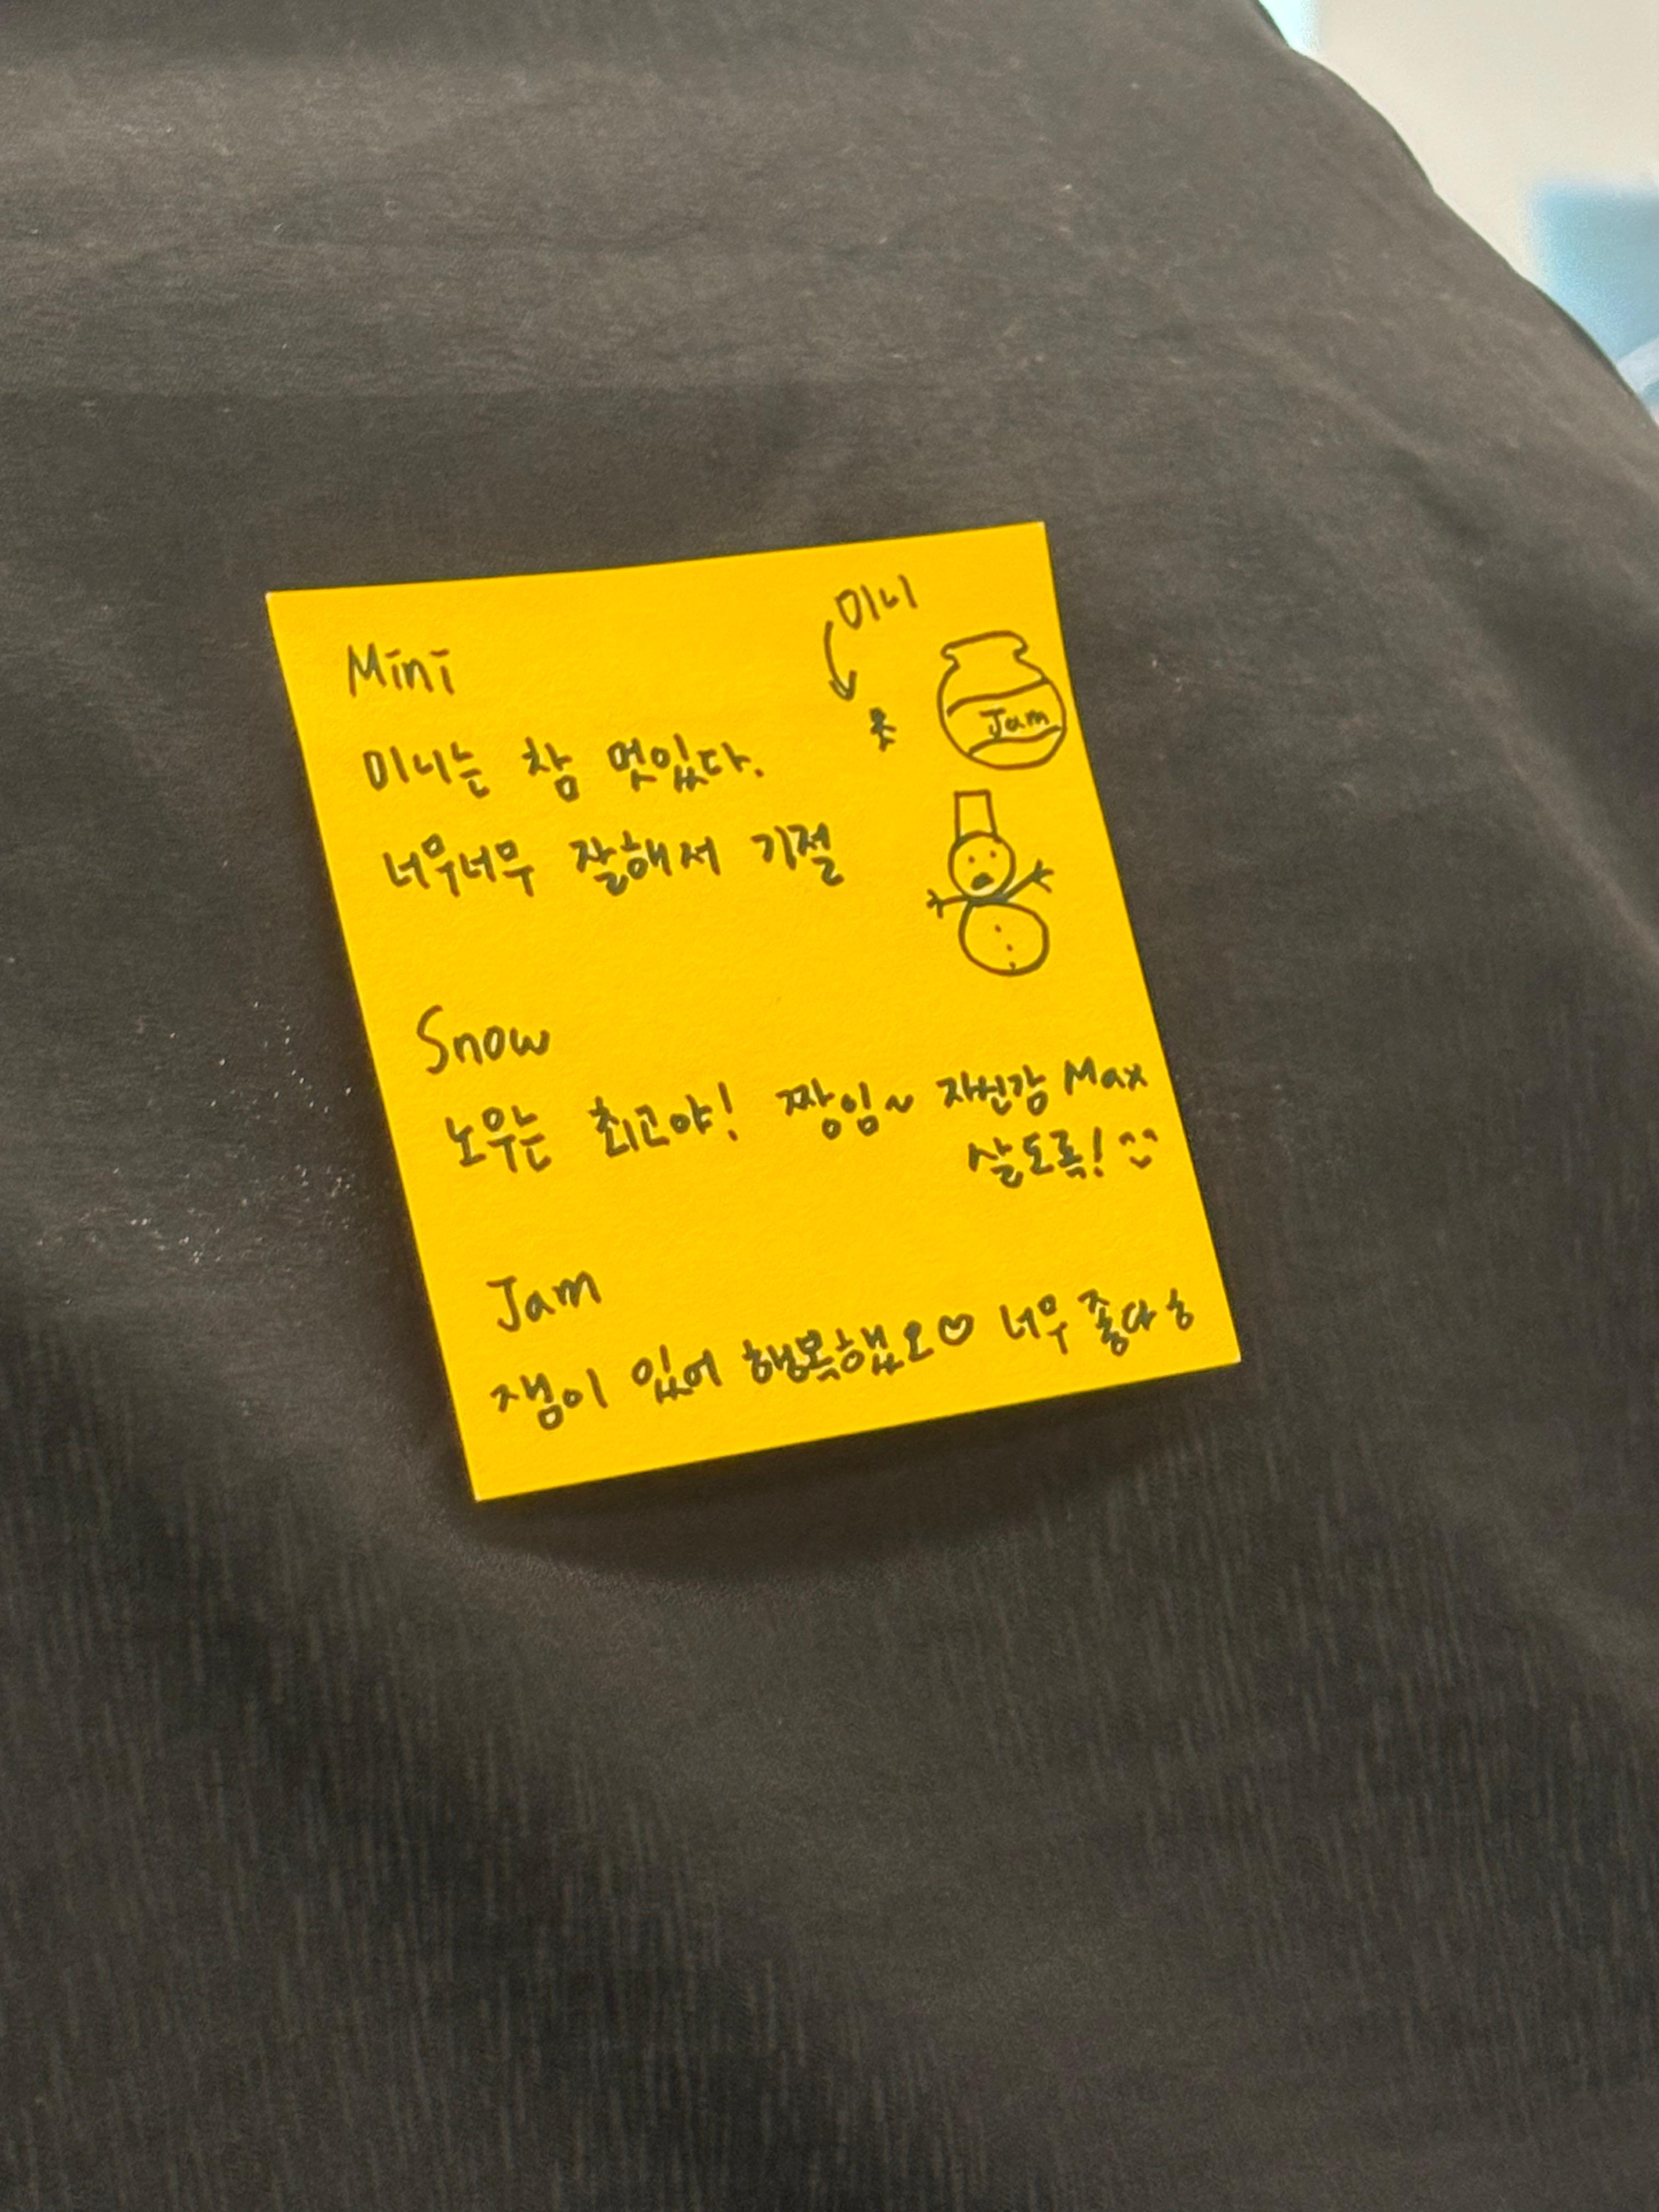 Mini
미니
미니는 참 멋있다.
너무너무 잘해서 기절
Jam
Snow
노우는 최고야! 짱임~ 자신감 Max
살도록!
Jam
잼이 있어 행복했오♡ 너무 좋다 ㅎ